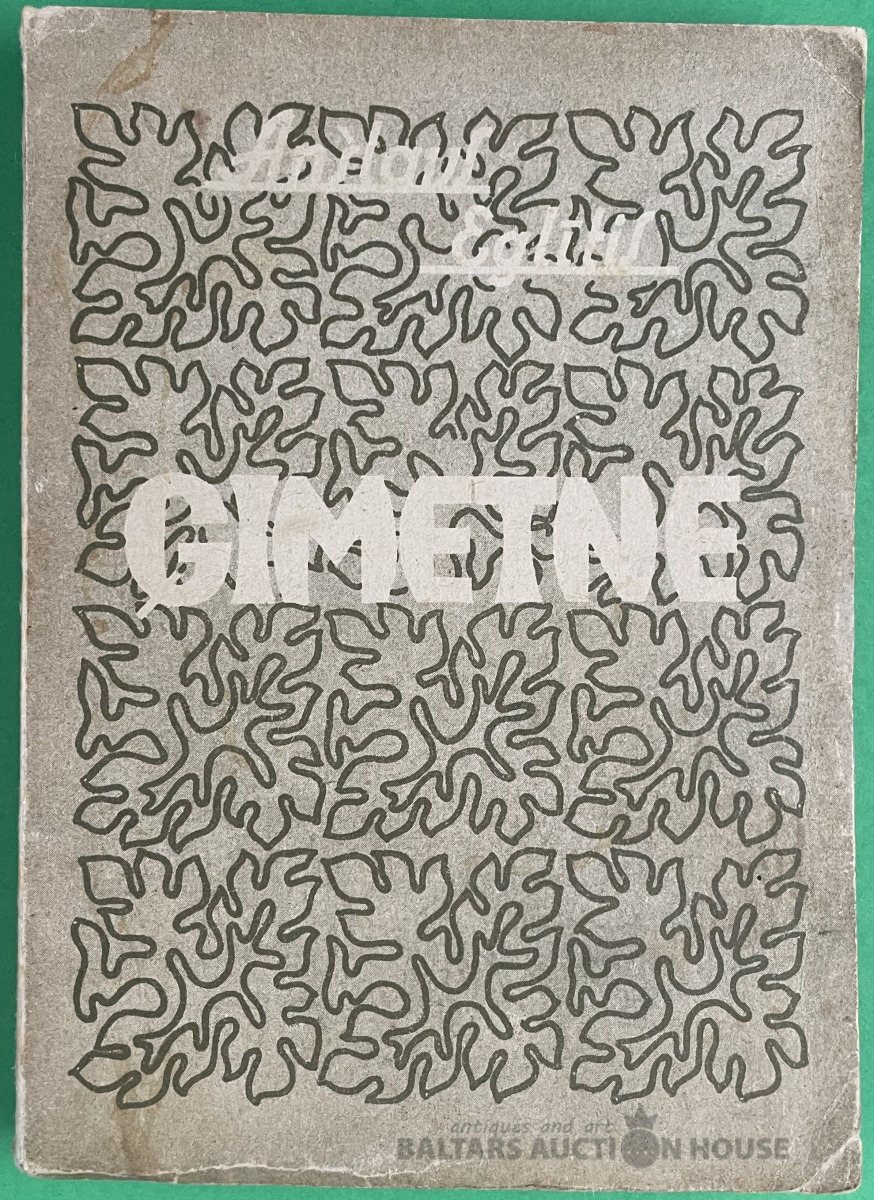 Anšlavs
Eglītis
ĢIMETNE
antiques and art
BALTARS AUCTION HOUSE